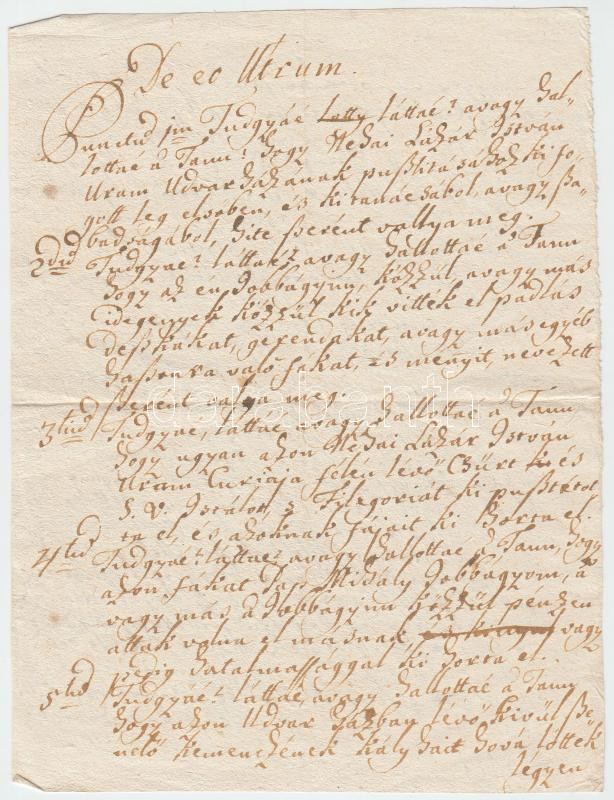 De eo Utrum.
Punctũ 1m Tudgyáé Láttáé? avagy hal-
lottaé à Tanu? hogy Néhai Lázár István
Uram Udvarházának pusztitásához ki fo-
gott leg elsőben, és ki tanácsából, avagy sza-
badságából, hite szerént vallya meg.
2do Tudgyáé? láttaé? avagy hallottaé à Tanu
hogy az én Jobbágyim közzül, avagy más
idegenyek közzül kik vittek el padlás
deszkákat, gerendákat, avagy más egyéb
haszonra való fákat, és menyit, nevezett
szerént vallya meg.
3tiũ Tudgyáé, láttaé, avagy hallottaé à Tanu,
hogy ugyan azon Néhai Lázár István
Uram Curiája felen lévő Csürt és
S. V. Istálott, s Filegoriát ki pusztitot
ta el, és azoknak fájait ki horta el
4tũ Tudgyáé? láttaé? avagy hallottaé à Tanu, hogy
azon fákat Pap Mihály Jobbágyom, à
vagy más à Jobbágyim közzül pénzen
attak volna el másnak vagy
pedig hatalmassággal ki horta el.
5tũ Tudgyáé? láttaé, avagy hallottaé à Tanu
hogy azon Udvar házban lévő kivül sze-
nelő kemenczének kályháit hová töttek
légyen
darabanth